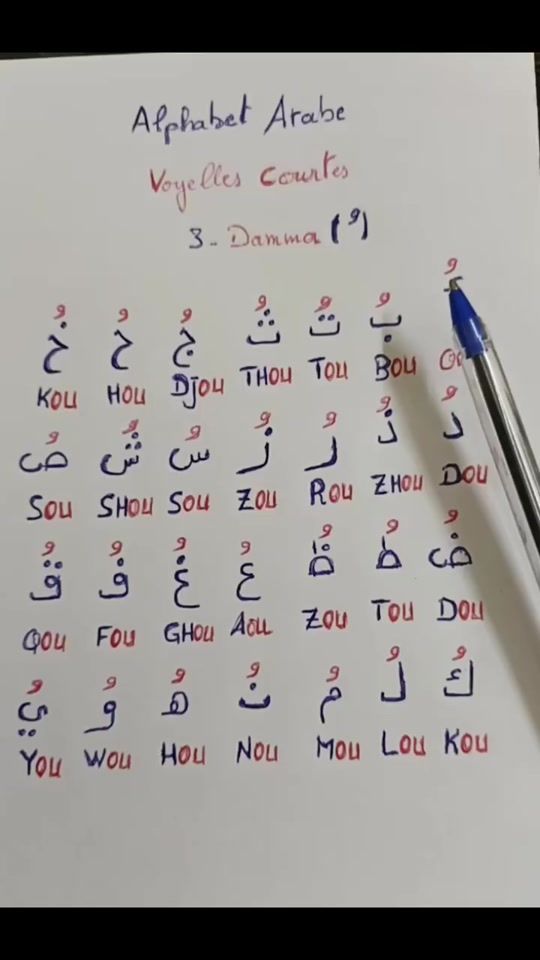 Alphabet Arabe
Voyelles Courtes
3- Damma (و)
بُ تُ ثُ جُ حُ خُ
KOU HOU DJOU THOU TOU BOU
دُ ذُ رُ زُ سُ شُ صُ
SOU SHOU SOU ZOU ROU ZHOU DOU
ضُ طُ ظُ عُ غُ فُ قُ
QOU FOU GHOU AOU ZOU TOU DOU
كُ لُ مُ نُ هُ وُ يُ
YOU WOU HOU NOU MOU LOU KOU